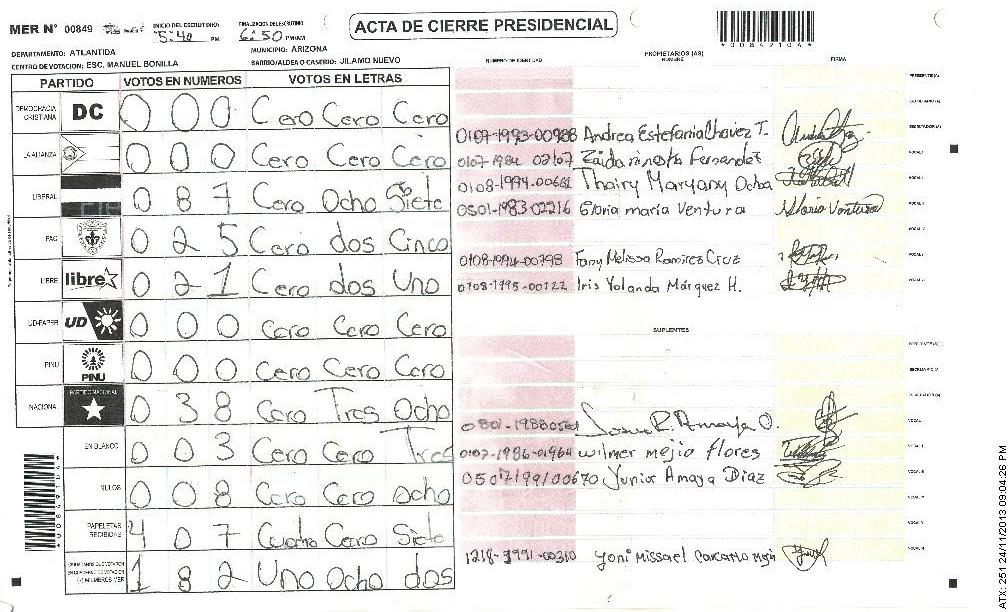 MER N° 00849
INICIO DEL ESCRUTINIO: 5:40 PM
FINALIZACION DEL ESCRUTINIO 6:50 PM/AM
ACTA DE CIERRE PRESIDENCIAL
*00842104*
DEPARTAMENTO: ATLANTIDA
MUNICIPIO: ARIZONA
CENTRO DE VOTACION: ESC. MANUEL BONILLA
BARRIO/ALDEA O CASERIO: JILAMO NUEVO
PARTIDO VOTOS EN NUMEROS VOTOS EN LETRAS
DEMOCRACIA CRISTIANA DC 0 0 0 Cero Cero Cero
LA ALIANZA 0 0 0 Cero Cero Cero
LIBERAL 0 8 7 Cero Ocho Siete
PAC 0 2 5 Cero dos Cinco
LIBRE libre 0 2 1 Cero dos Uno
UD-FAPER UD 0 0 0 Cero Cero Cero
PINU PINU 0 0 0 Cero Cero Cero
NACIONAL PARTIDO NACIONAL 0 3 8 Cero Tres Ocho
EN BLANCO 0 0 3 Cero Cero Tres
NULOS 0 0 8 Cero Cero Ocho
PAPELETAS RECIBIDAS 4 0 7 Cuatro Cero Siete
1 8 2 Uno Ocho dos
NUMERO DE IDENTIDAD
PROPIETARIOS (AS)
NOMBRE
FIRMA
PRESIDENTE (A)
SECRETARIO (A)
ESCRUTADOR (A)
0107-1993-00988 Andrea Estefania Chavez T.
0107-1984 02107 Fernandez
0108-1994-00681 Thairy Maryany Ocha
0501-1983 02216 Gloria maria Ventura Gloria Ventura
0108-1994-00798 Fany Melissa Ramirez Cruz
0708-1995-00122 Iris Yolanda Márquez H.
SUPLENTES
R. Amaya O.
0107-1986-01964 wilmer mejia flores
0507199100670 Junior Amaya Diaz
1218-1991-00310 Yoni Missael Carcamo Mejia
ATX: 251 24/11/2013 09:04:26 PM